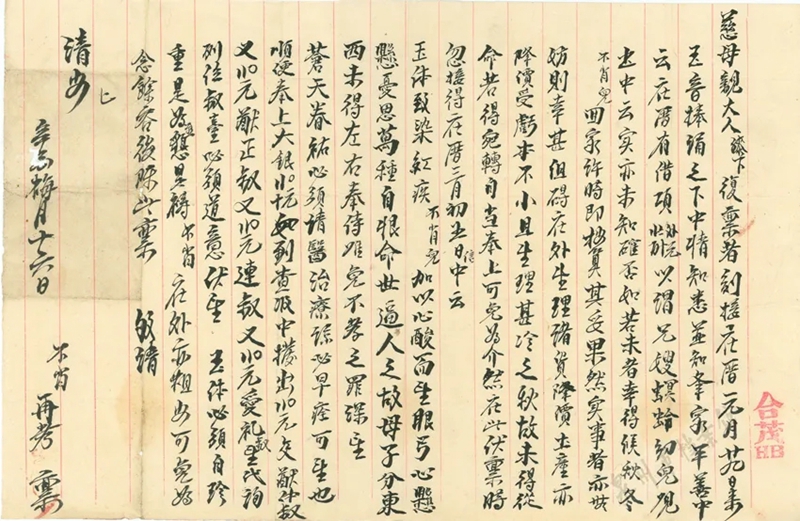 慈母親大人膝下復稟者刻接在厝元月廿九日来
玉音捧誦之下中情知悉並知家平善中
云在厝有借項以謂兄嫂螟蛉幼兒
中云实亦未知確否如若未者幸得候秋冬
不肖兒回家許時即打算其妥果然实事者亦無
妨則幸甚但碍在外生理諸貨降價土產亦
降價受虧本不小且生理甚冷之秋故未得從
命若得宛轉自当奉上可免為介然在此伏稟時
忽接得在厝三月初五日信中云
玉体致染紅疾不肖兒加以心酸而生眼弓心懸
懸憂思萬種自恨命世逼人之故母子分東
西未得左右奉侍难免不孝之罪深望
蒼天眷祐必須請醫治療諒必早痊可望也
順便奉上大銀元如到查收中撥出元交猷仲叔
又元猷正叔又元連叔又元愛礼叔並代詢
列位叔臺必須道意伏望 玉体必須自珍
重是為懇是禱不肖在外亦粗安可免為
念餘容後陳此稟 敬請
清安 上
辛梅月十六日
不肖 再考 稟
合茂BB